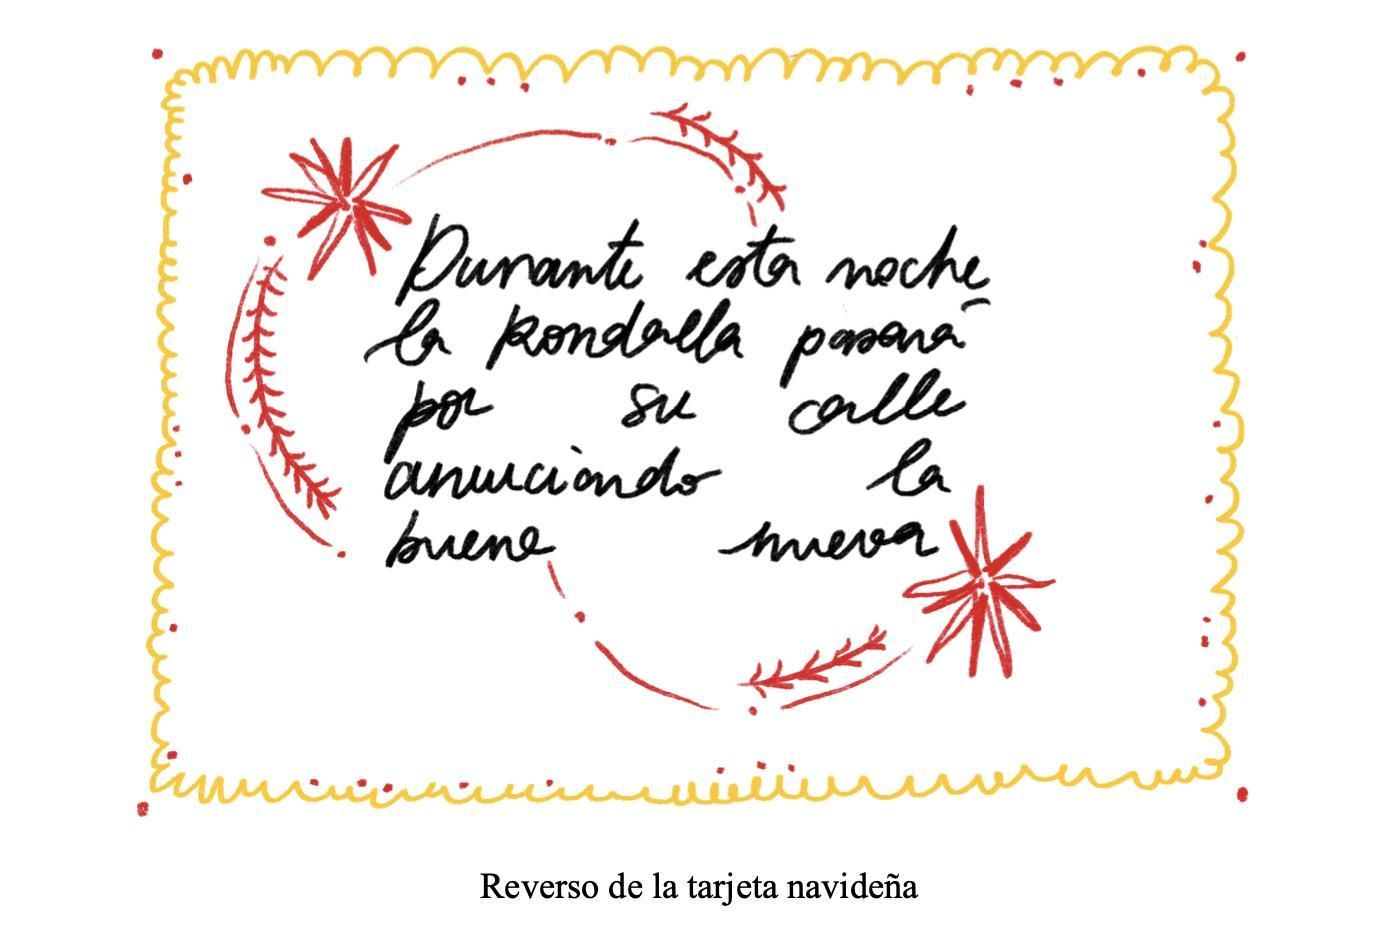 Durante esta noche
la Rondalla pasará
por su calle
anunciando la
buena nueva
Reverso de la tarjeta navideña